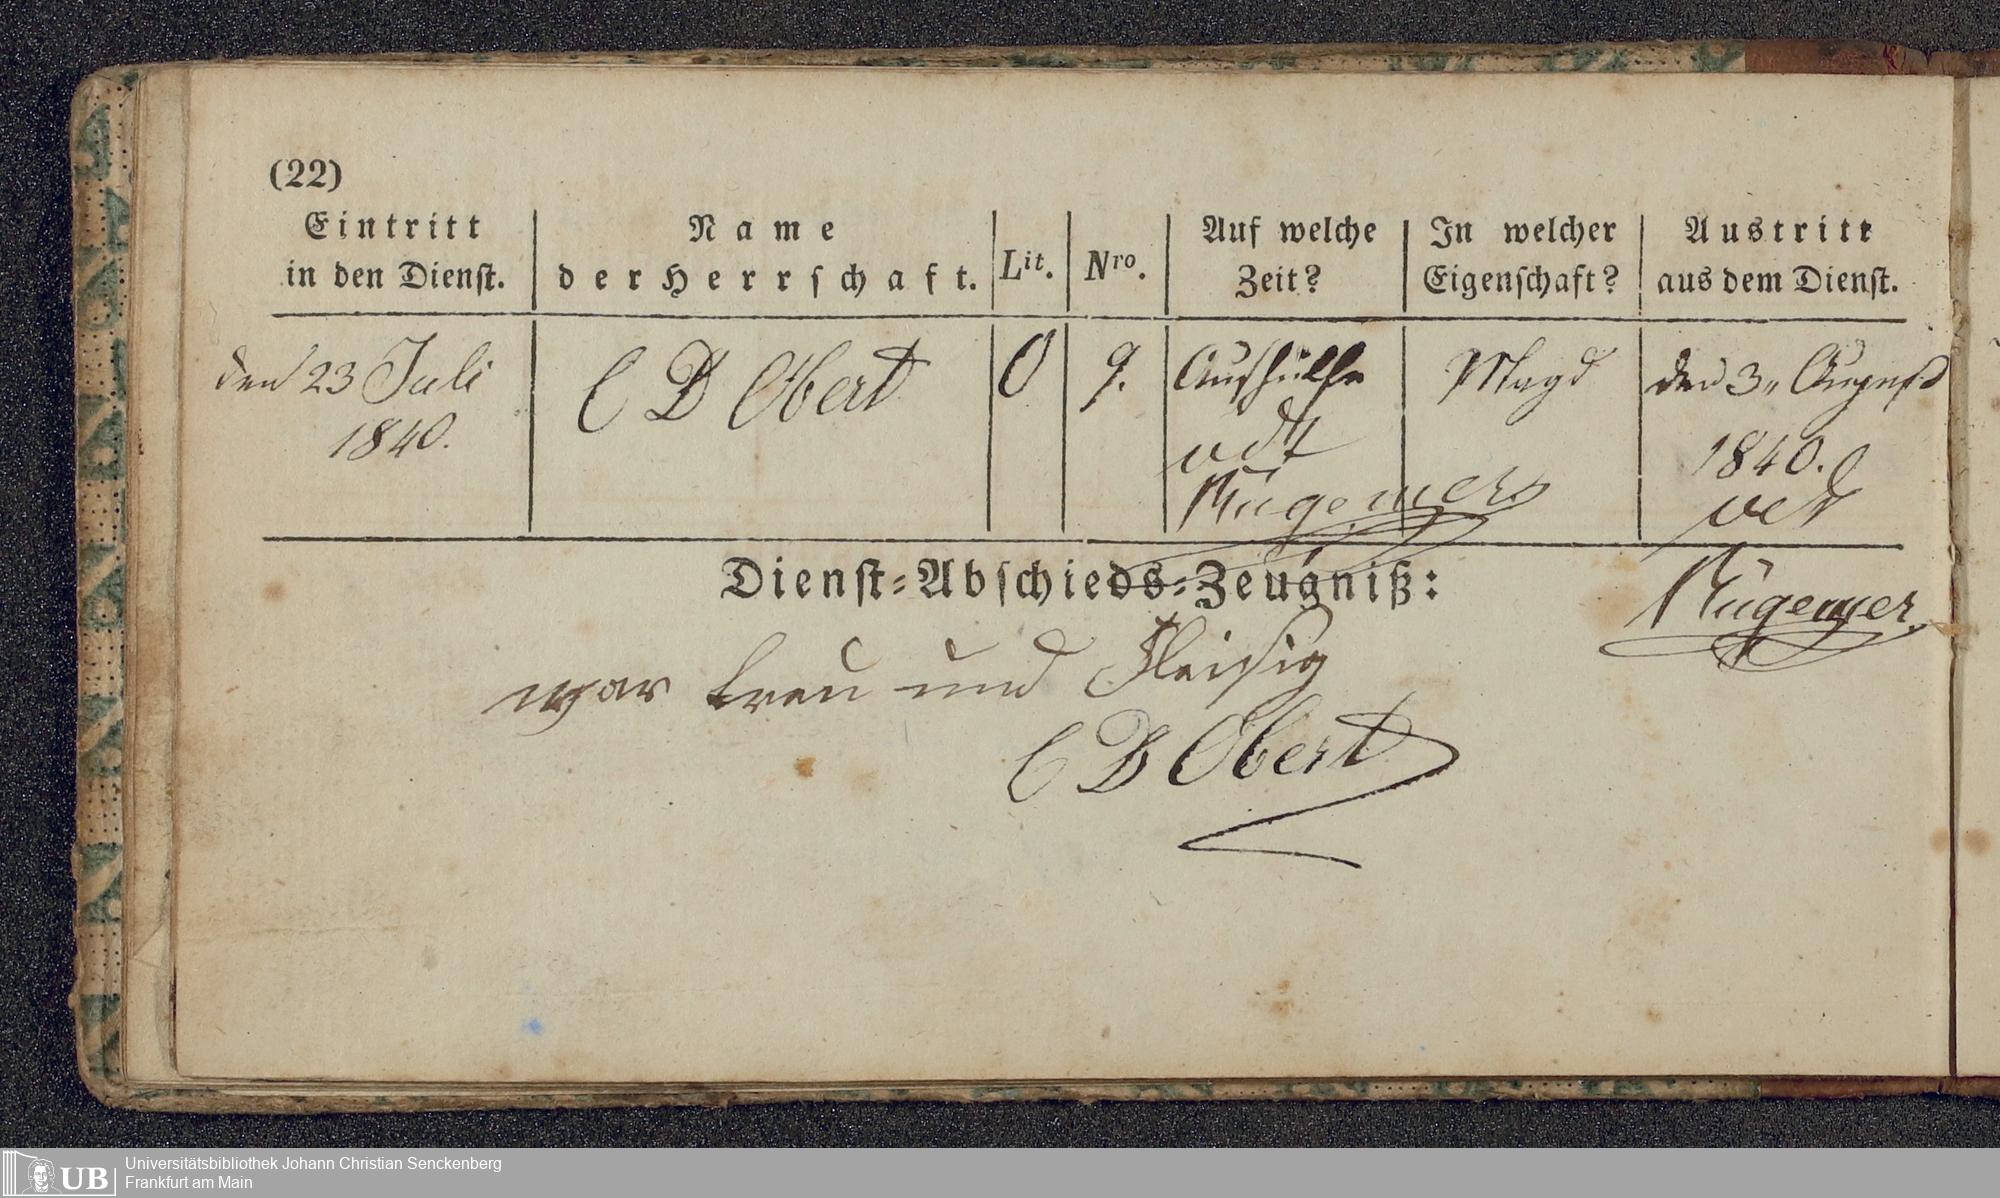 (22)
Eintritt in den Dienst.
Name der Herrschaft.
Lit.
Nro.
Auf welche Zeit?
In welcher Eigenschaft?
Austritt aus dem Dienst.
den 23 Juli
1840.
C D Obert
O
9.
Aushülfe
vdt
Rügemer
Magd
den 3„ August
1840.
vdt
Rügemer
Dienst-Abschieds-Zeugniß:
war treu und Fleisig
C D Obert
UB
Universitätsbibliothek Johann Christian Senckenberg
Frankfurt am Main